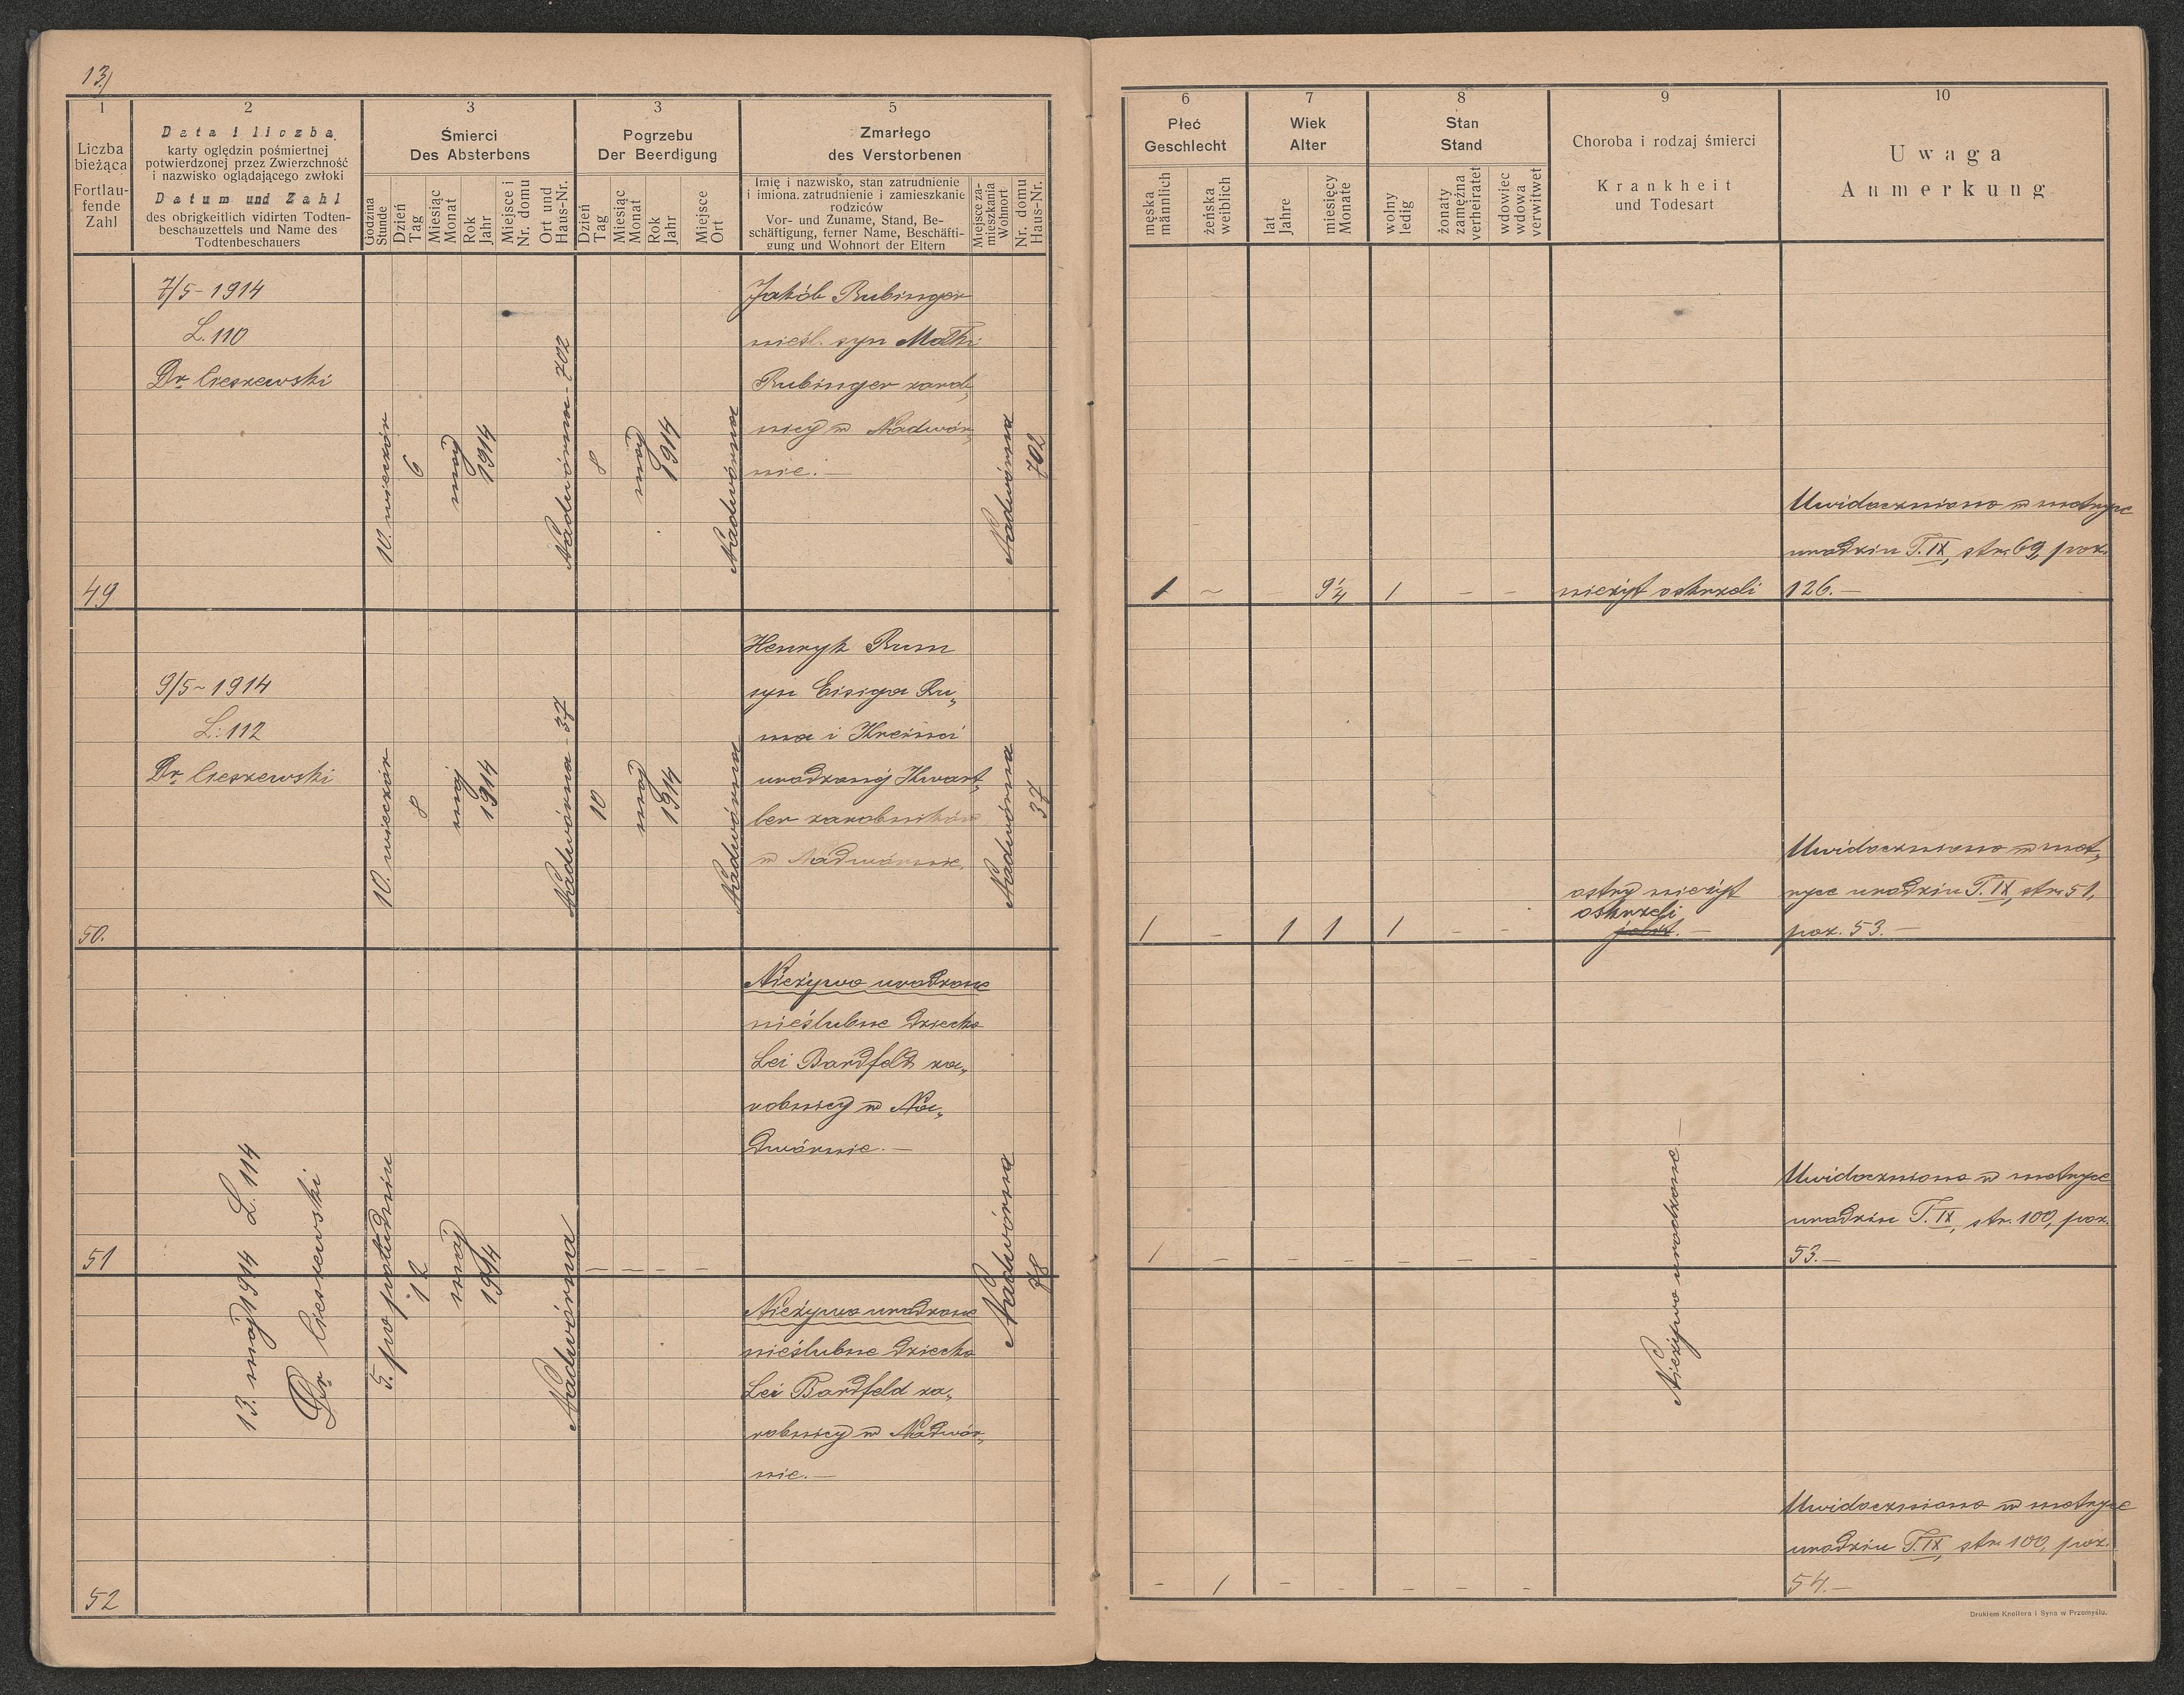 13/
1
Liczba
bieżąca
Fortlau-
fende
Zahl
2
Data i liczba
karty oględzin pośmiertnej
potwierdzonej przez Zwierzchność
i nazwisko oglądającego zwłoki
Datum und Zahl
des obrigkeitlich vidirten Todten-
beschauzettels und Name des
Todtenbeschauers
3
Śmierci
Des Absterbens
Godzina
Stunde
Dzień
Tag
Miesiąc
Monat
Rok
Jahr
Miejsce i
Nr. domu
Ort und
Haus-Nr.
3
Pogrzebu
Der Beerdigung
Dzień
Tag
Miesiąc
Monat
Rok
Jahr
Miejsce
Ort
5
Zmarłego
des Verstorbenen
Imię i nazwisko, stan zatrudnienie
i imiona, zatrudnienie i zamieszkanie
rodziców
Vor- und Zuname, Stand, Be-
schäftigung, ferner Name, Beschäfti-
gung und Wohnort der Eltern
Miejsce za-
mieszkania
Wohnort
Nr. domu
Haus-Nr.
6
Płeć
Geschlecht
męska
männlich
żeńska
weiblich
7
Wiek
Alter
lat
Jahre
miesięcy
Monate
8
Stan
Stand
wolny
ledig
żonaty
zamężna
verheiratet
wdowiec
wdowa
verwitwet
9
Choroba i rodzaj śmierci
Krankheit
und Todesart
10
Uwaga
Anmerkung
49
7/5 - 1914
L. 110
Dr. Cieszewski
10. wieczór
6
maj
1914
Nadwórna - 702
8
maj
1914
Nadwórna
Jakób Rubinger
nieśl. syn Matki
Rubinger zarob„
nicy w Nadwór„
nie. —
Nadwórna
702
1 ~ - 9 1/4 1 - -
nieżyt oskrzeli
Uwidoczniono w matryce
urodzin T. IX, str. 69, poz.
126. —
50.
9/5 ~ 1914
L: 112
Dr. Cieszewski
10. wieczór
8
maj
1914
Nadwórna - 37
10
maj
1914
Nadwórna
Henryk Rum
syn Eisiga Ru„
ma i Kreinci
urodzonej Kwart„
ler zarobników
w Nadwórnie.
Nadwórna
37
1 - 1 1 1 - -
ostry nieżyt
oskrzeli
Uwidoczniono w mat„
ryce urodzin T. IX, str. 51,
poz. 53. —
51
13. maj 1914 L. 114
Dr. Cieszewski
5. po południu
12
maj
1914
Nadwórna
- - - -
Nieżywo urodzone
nieślubne dziecko
Lei Bardfeld za„
robnicy w Na„
dwórnie. —
Nadwórna
78
1 - - - - - -
Nieżywo urodzone —
Uwidoczniono w matryce
urodzin T. IX, str. 100, poz.
53. —
52
Nieżywo urodzone
nieślubne dziecko
Lei Bardfeld za„
robnicy w Nadwór„
nie. —
- 1 - - - - -
Uwidoczniono w matryce
urodzin T. IX, str. 100, poz.
54. —
Drukiem Knollera i Syna w Przemyślu.